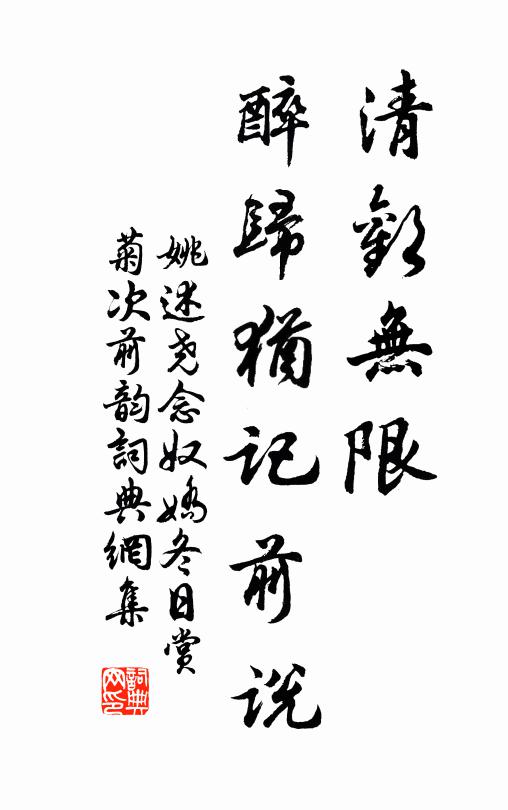 清歡無限
醉歸猶記前說
姚述堯念奴嬌冬日賞
菊次前韵詞典網集
詞典網印